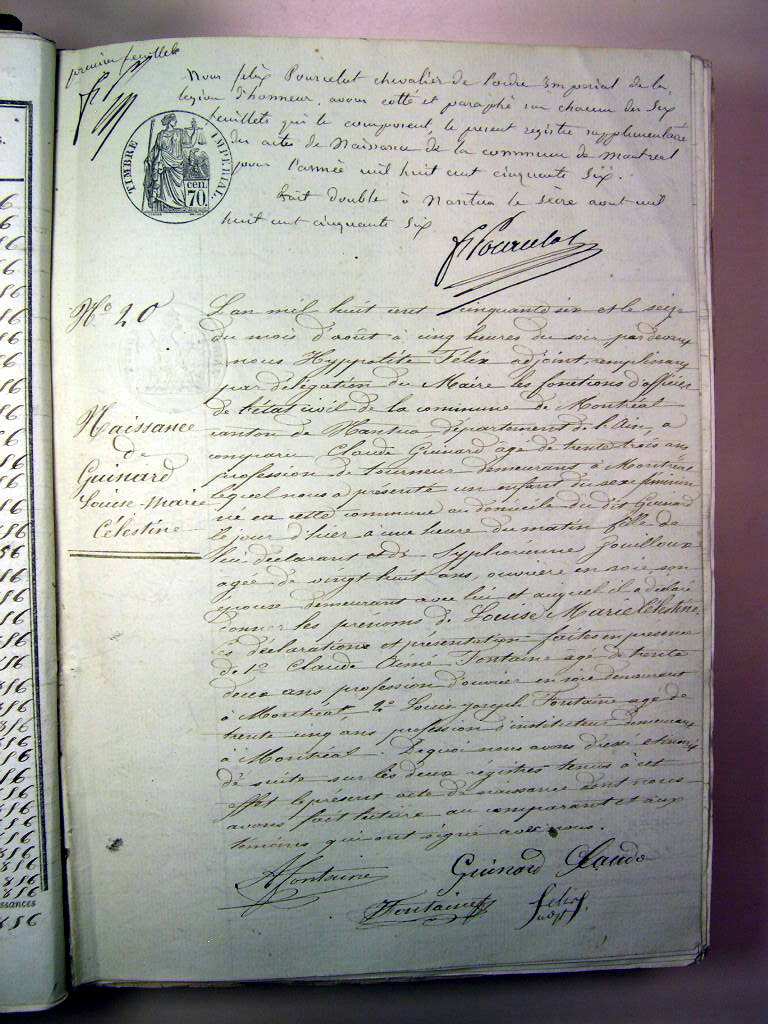 premier feuillet
Nous félix Pourcelot chevalier de l'ordre Impérial de la
légion d'honneur, avons cotté et paraphé sur chacun des Six
feuillets qui le composent, le présent registre supplémentaire
des actes de Naissance de la commune de Montreal
pour l'année mil huit cent cinquante Six.
fait double à Nantua le Seize aout mil
huit cent cinquante Six
TIMBRE IMPERIAL
70 CEN.
F Pourcelot
No 20
Naissance
de
Guinard
Louise-Marie
Célestine
L'an mil huit cent cinquante six et le seize
du mois d'août à cinq heures du soir par devant
nous Hyppolite Félix adjoint, remplissant
par délégation du Maire les fonctions d'officier
de l'état civil de la commune de Montréal
canton de Nantua département de l'Ain, a
comparu Claude Guinard agé de trente trois ans
profession de tourneur demeurant à Montréal
lequel nous a présenté un enfant du sexe féminin
né en cette commune au domicile du dit Guinard
le jour d'hier à une heure du matin fille de
lui déclarant et de Syphorienne Jouilloux
agée de vingt huit ans, ouvrière en soie, son
épouse demeurant avec lui et auquel il a déclaré
donner les prénoms de Louise Marie Célestine,
les déclarations et présentation faites en présence
de 1o Claude Aimé Fontaine agé de trente
deux ans profession d'ouvrier en soie demeurant
à Montréal, 2o Louis joseph Fontaine agé de
trente cinq ans profession d'instituteur demeurant
à Montréal. De quoi nous avons
de suite sur les deux régistres tenus à cet
effet le présent acte de naissance dont nous
avons fait lecture au comparant et aux
témoins qui ont signé avec nous.
A Fontaine
Guinard Claude
Fontaine
felix
adjt